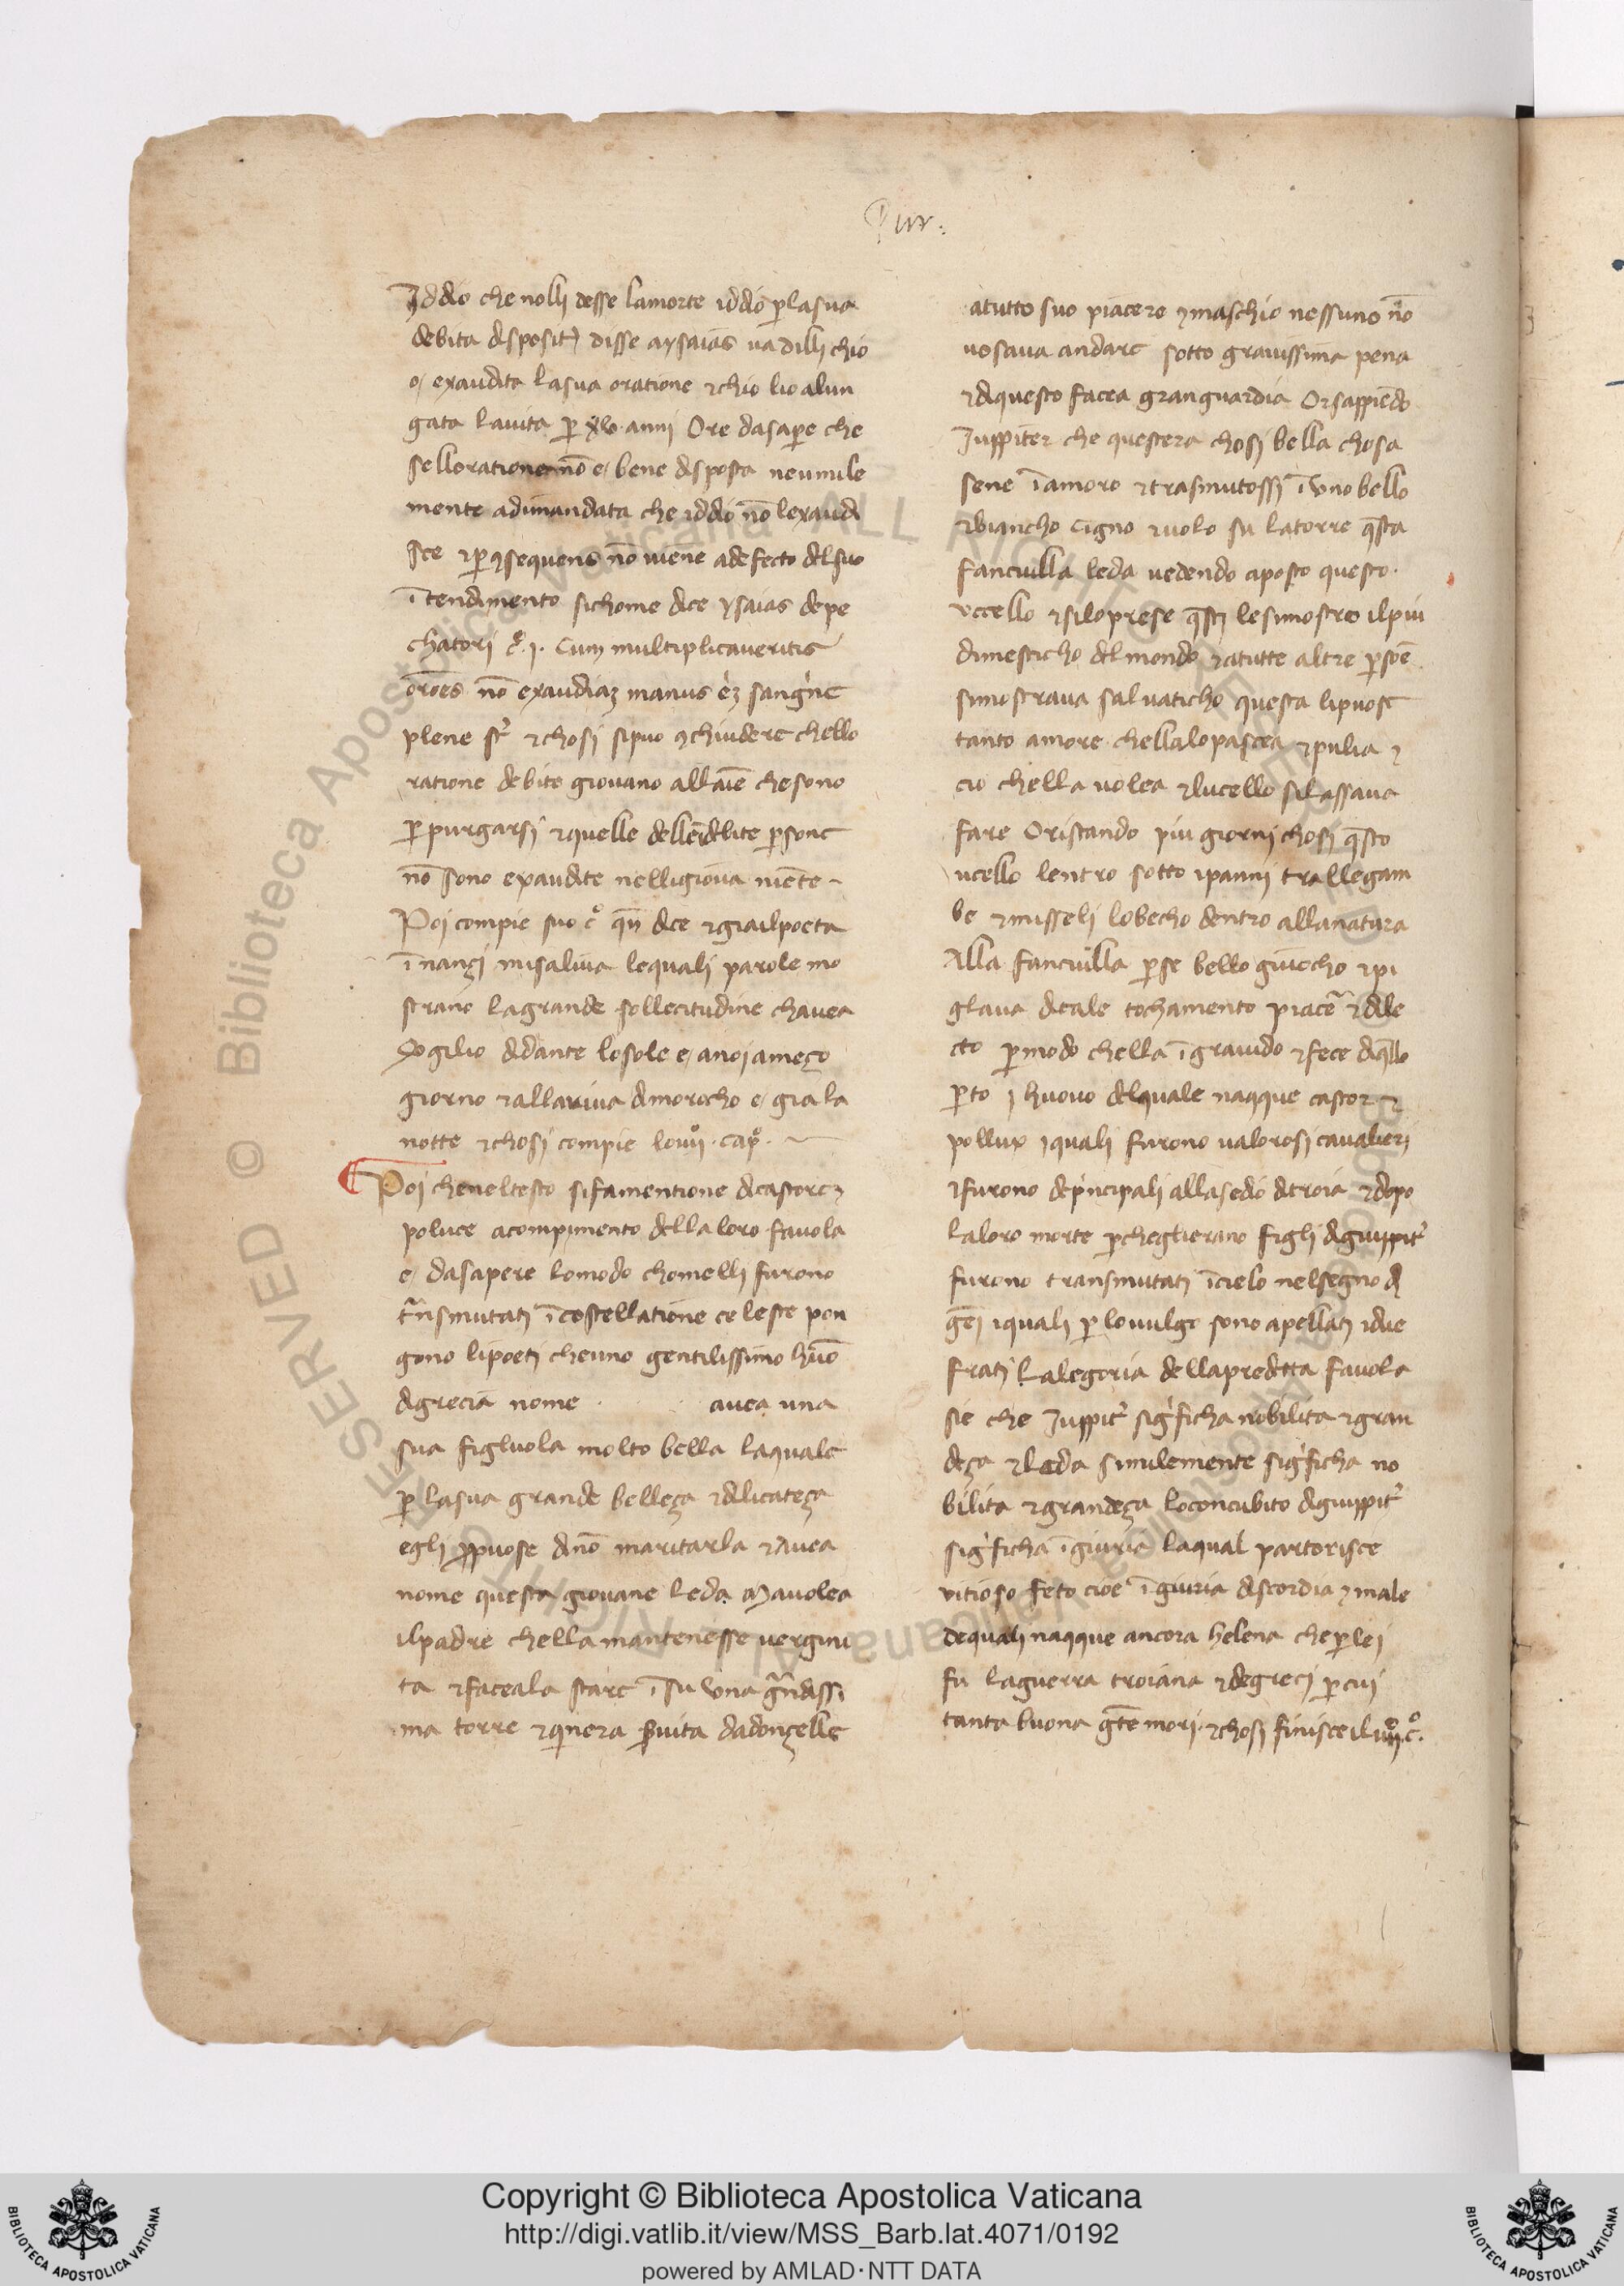 Pur.
Iddio che nolli desse lamorte iddio p̲lasua
debita dispositõe disse aysaias va dilli chio
o exaudita lasua oratione ⁊chio lio alun
gata lauita p̲ xv anni Ore dasap̲e che
sellorationenõ e bene disposta neumile
mente adimandata che iddio nõ lexaudi
sce ⁊p̲ ꝯsequens nõ viene adefecto delsuo
ītendimento sichome dice ysaias depe
chatori c̊. j. Cum multiplicaueritis
orões nõ exaudiaȝ manus .n. sanguine
plene st̃ ⁊chosi sipuo ꝯchiudere chello
ratione debite giouano allaīe chesono
p̲ purgarsi ⁊quelle dellendebite p̲sone
nõ sono exaudite nelligioua niẽte
Poi compie suo c̊ qñ dice ⁊giailpoeta
īnançi misaliua lequali parole mo
strano lagrande sollecitudine chauea
Vgilio didante losole e anoi ameço
giorno ⁊allariua dimorocho e giala
notte ⁊chosi compie louij cap̊.
Poi cheneltesto sifamentione dicastore ⁊
poluce acompimento della loro fauola
e dasapere lomodo chomelli furono
trãsmutati ī costellatione celeste pon
gono lipoeti cheuno gentilissimo huõ
digrecia nome auea una
sua figluola molto bella laquale
p̲ lasua grande belleça ⁊dilicateça
egli p̲puose dinõ maritarla ⁊auea
nome questa giouane leda Mauolea
ilpadre chella mantenesse uergini
ta ⁊faceala stare ī su una grãdissi
ma torre ⁊quiera s̲uita dadonçelle
atutto suo piacere ⁊maschio nessuno nõ
uosaua andare sotto grauissima pena
⁊diquesto facea granguardia Orsappiẽdo
Juppiter che questera chosi bella chosa
sene īamoro ⁊trasmutossi ī uno bello
⁊biancho cigno ⁊uolo su latorre q̃sta
fanciulla leda uedendo aposto questo
uccello ⁊siloprese q̃sti lesimostro ilpiu
dimesticho del mondo ⁊atutte altre p̲sõe
simostraua saluaticho questa lipuose
tanto amore chellalopascea ⁊pulia ⁊
cio chella uolea ⁊lucello silassaua
fare Oristando piu giorni chosi q̃sto
ucello lentro sotto ipanni trallegam
be ⁊misseli lobecho dentro allanatura
Alla fanciulla p̲se bello giuocho ⁊pi
glaua ditale tochamento piacẽ ⁊dile
cto p̲modo chella īgrauido ⁊fece diq̃llo
p̲to j huouo delquale naqque castor ⁊
pollux iquali furono ualorosi caualieri
⁊furono deprincipali allasedio ditroia ⁊dopo
laloro morte p̲cheglierano figli digiuppit̃
furono transmutati īcielo nelsegno di
gẽi iquali p̲ louulgo sono apellati idue
frati Lalegoria dellapredetta fauola
sie che Juppit̃ sigificha nobilita ⁊gran
deça ⁊leda similemente sigificha no
bilita ⁊grandeça loconcubito digiuppit̃
sigificha īgiuria laqual partorisce
uitioso feto cioe īgiuria discordia ⁊male
dequali naqque ancora helena chep̲lei
fu laguerra troiana ⁊degreci p̲cui
tanta buona gẽte mori ⁊chosi finisceil vij c̊.
Copyright © Biblioteca Apostolica Vaticana
http://digi.vatlib.it/view/MSS_Barb.lat.4071/0192
powered by AMLAD·NTT DATA
BIBLIOTECA APOSTOLICA VATICANA
BIBLIOTECA APOSTOLICA VATICANA